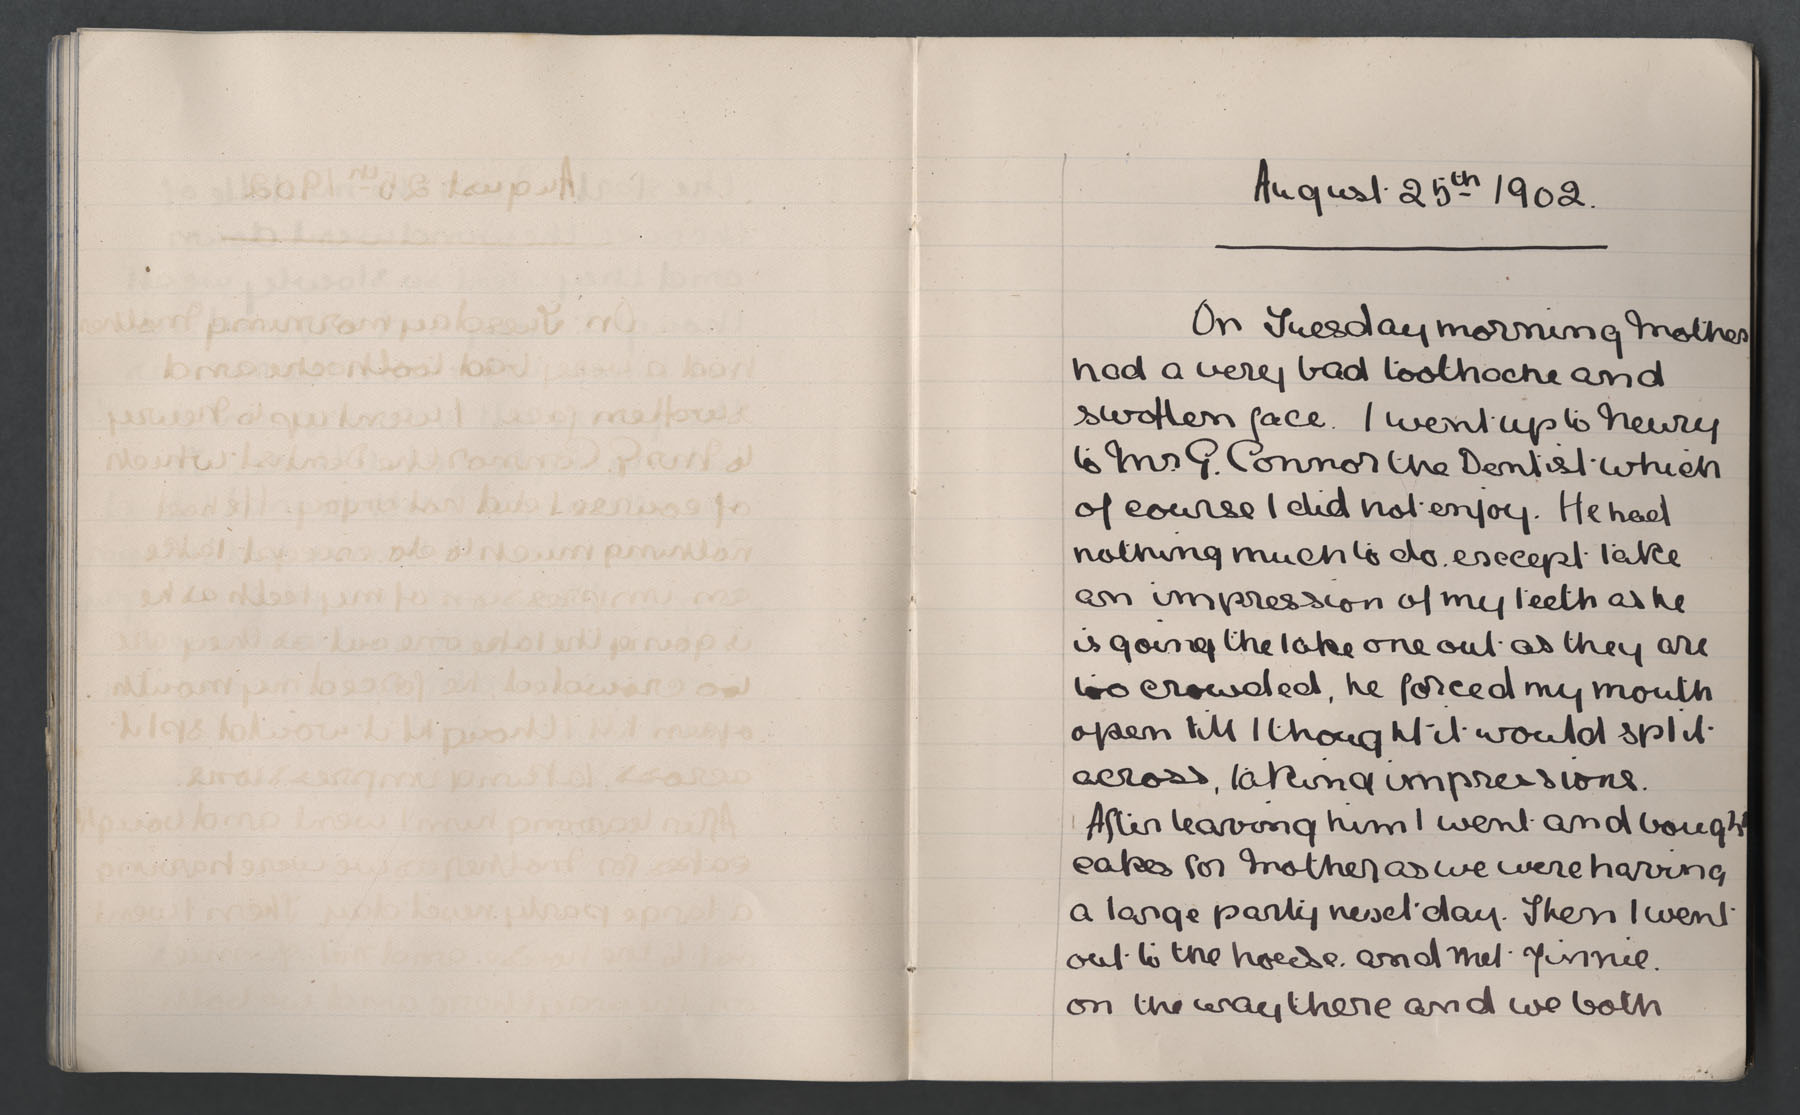 August 25th 1902.
On Tuesday morning Mother
had a very bad toothache and
swollen face. I went up to Newry
to Mr G. Connor the Dentist which
of course I did not enjoy. He had
nothing much to do. except take
an impression of my teeth as he
is going the take one out as they are
too crowded, he forced my mouth
open till I thought it would split
across, taking impressions.
After leaving him I went and bought
cakes for Mother as we were having
a large party next day. Then I went
out to the house. and met Jinnie.
on the way there and we both